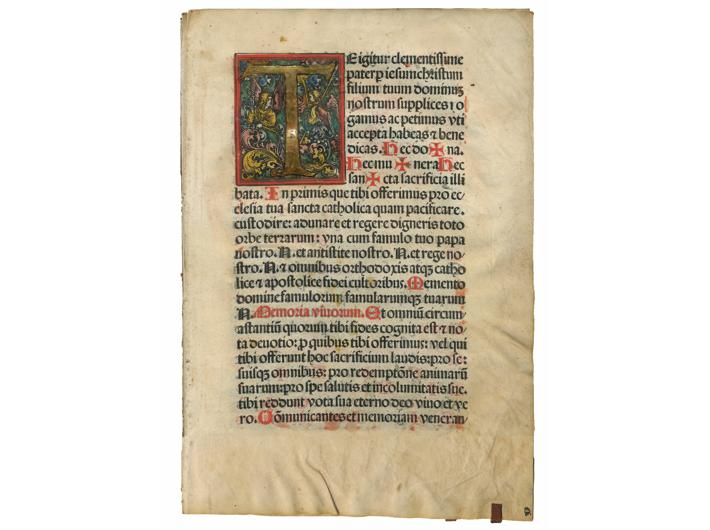 T
E igitur clementissime
pater ꝑ iesum christum
filium tuum dominuꝫ
nostrum supplices ro
gamus ac petimus vti
accepta habeas ⁊ bene
dicas. Hec do ✠ na.
Hec mu ✠ nera Hec
san ✠ cta sacrificia illi
bata. In primis que tibi offerimus pro ec
clesia tua sancta catholica quam pacificare.
custodire: adunare et regere digneris toto
orbe terrarum: vna cum famulo tuo papa
nostro. N. et antistite nostro. N. et rege no/
stro. N. ⁊ omnibus orthodoxis atqꝫ catho
lice ⁊ apostolice fidei cultoribus. Memento
domine famulorum famularumqꝫ tuarum
N. Memoria viuorum. Et omniū circum/
astantiū quorum tibi fides cognita est ⁊ no
ta deuotio: ꝓ quibus tibi offerimus: vel qui
tibi offerunt hoc sacrificium laudis: pro se:
suisqꝫ omnibus: pro redemptōne animarū
suarum: pro spe salutis et incolumitatis sue.
tibi reddunt vota sua eterno deo viuo et ve
ro. Cōmunicantes et memoriam veneran/